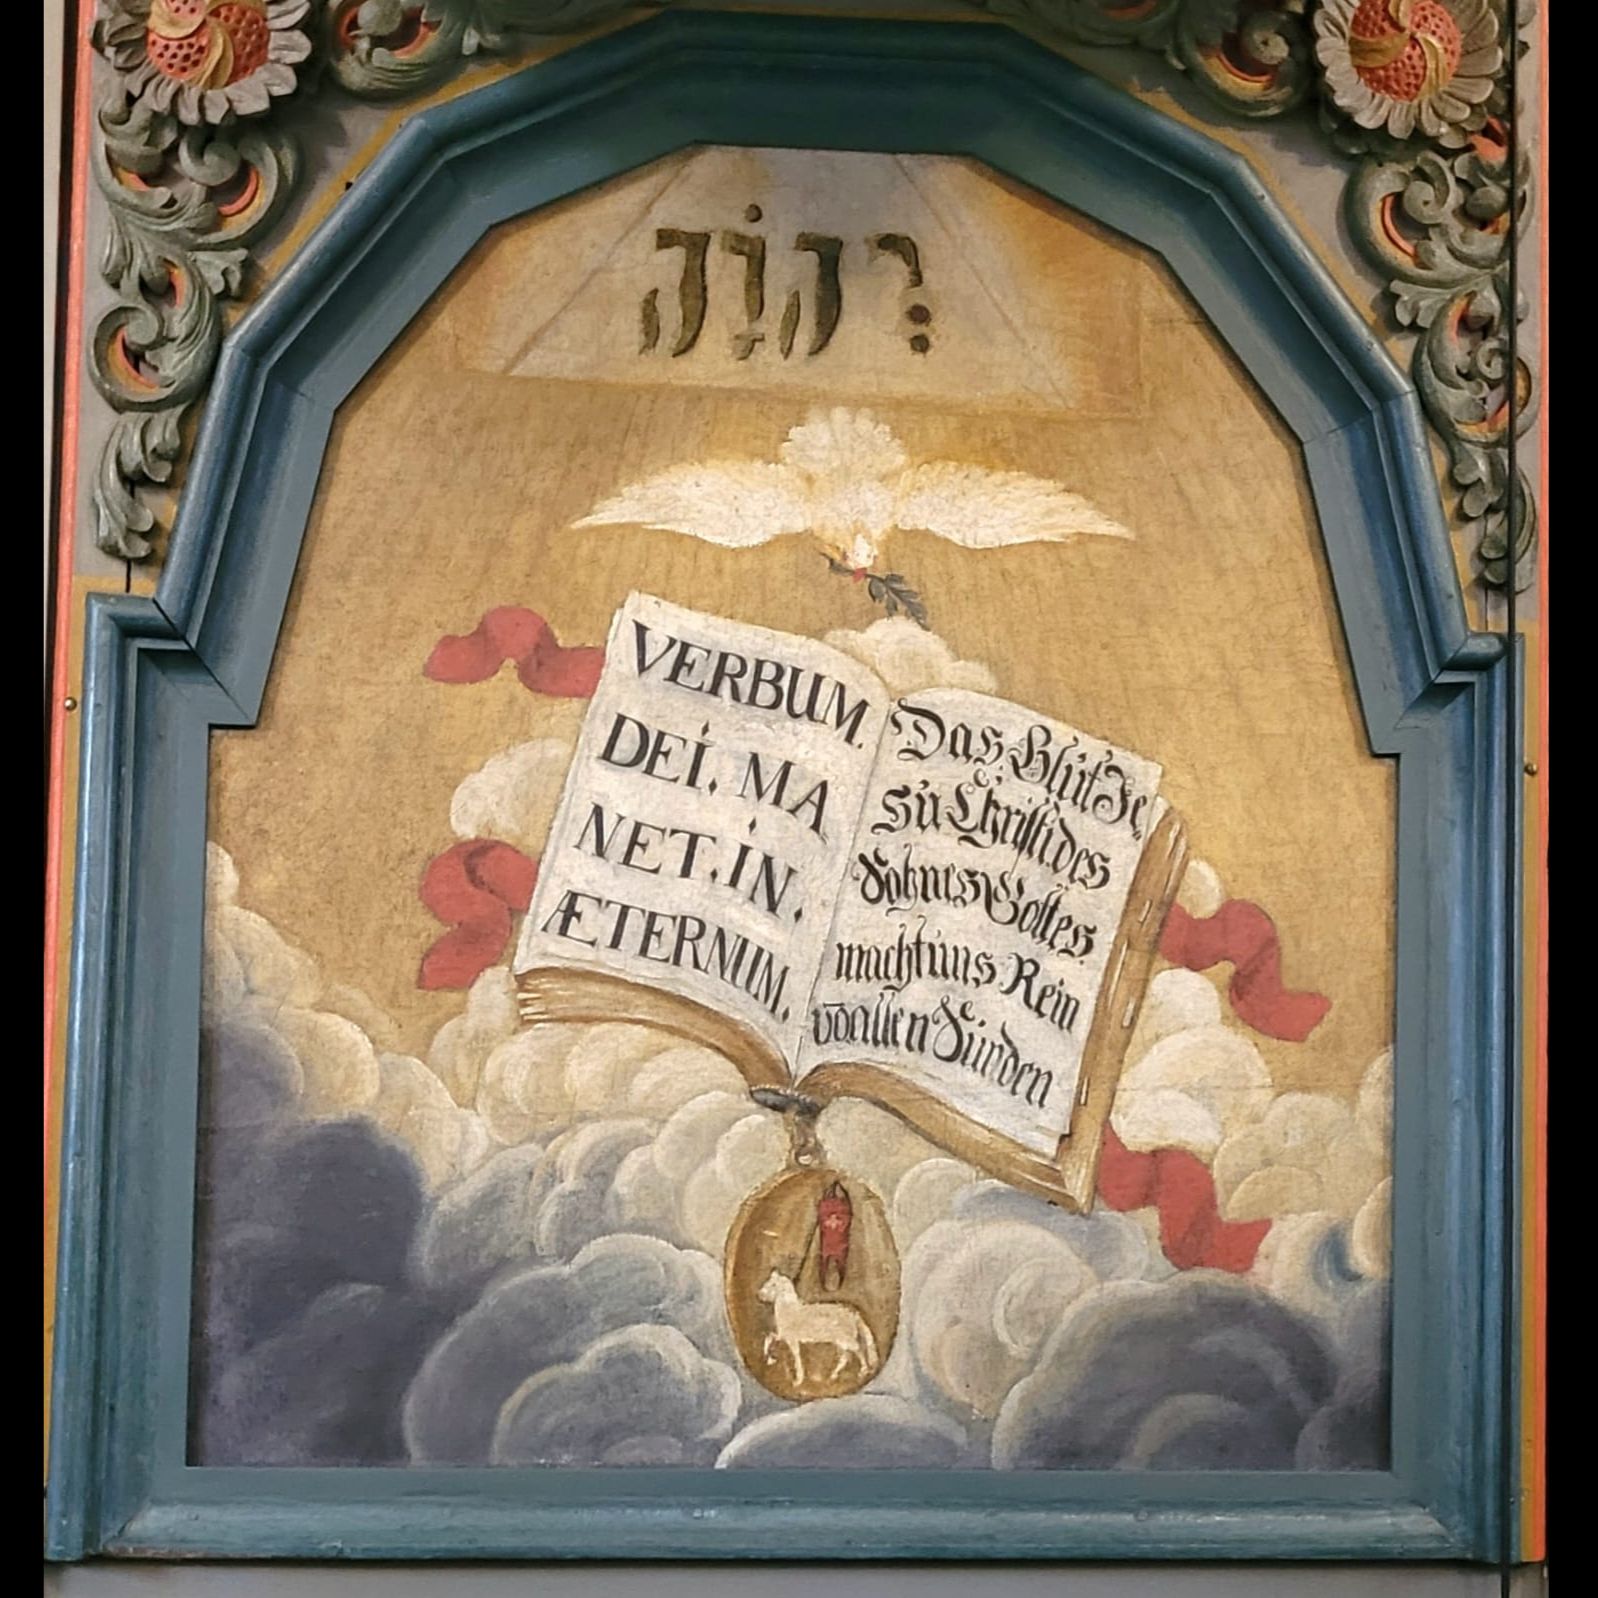 יְהֹוָה
VERBUM.
DEI. MA
NET. IN.
ÆTERNUM.
Das. Blut Je„
su Christi. des
Sohnes Gottes.
macht uns Rein
vō allen Sünden